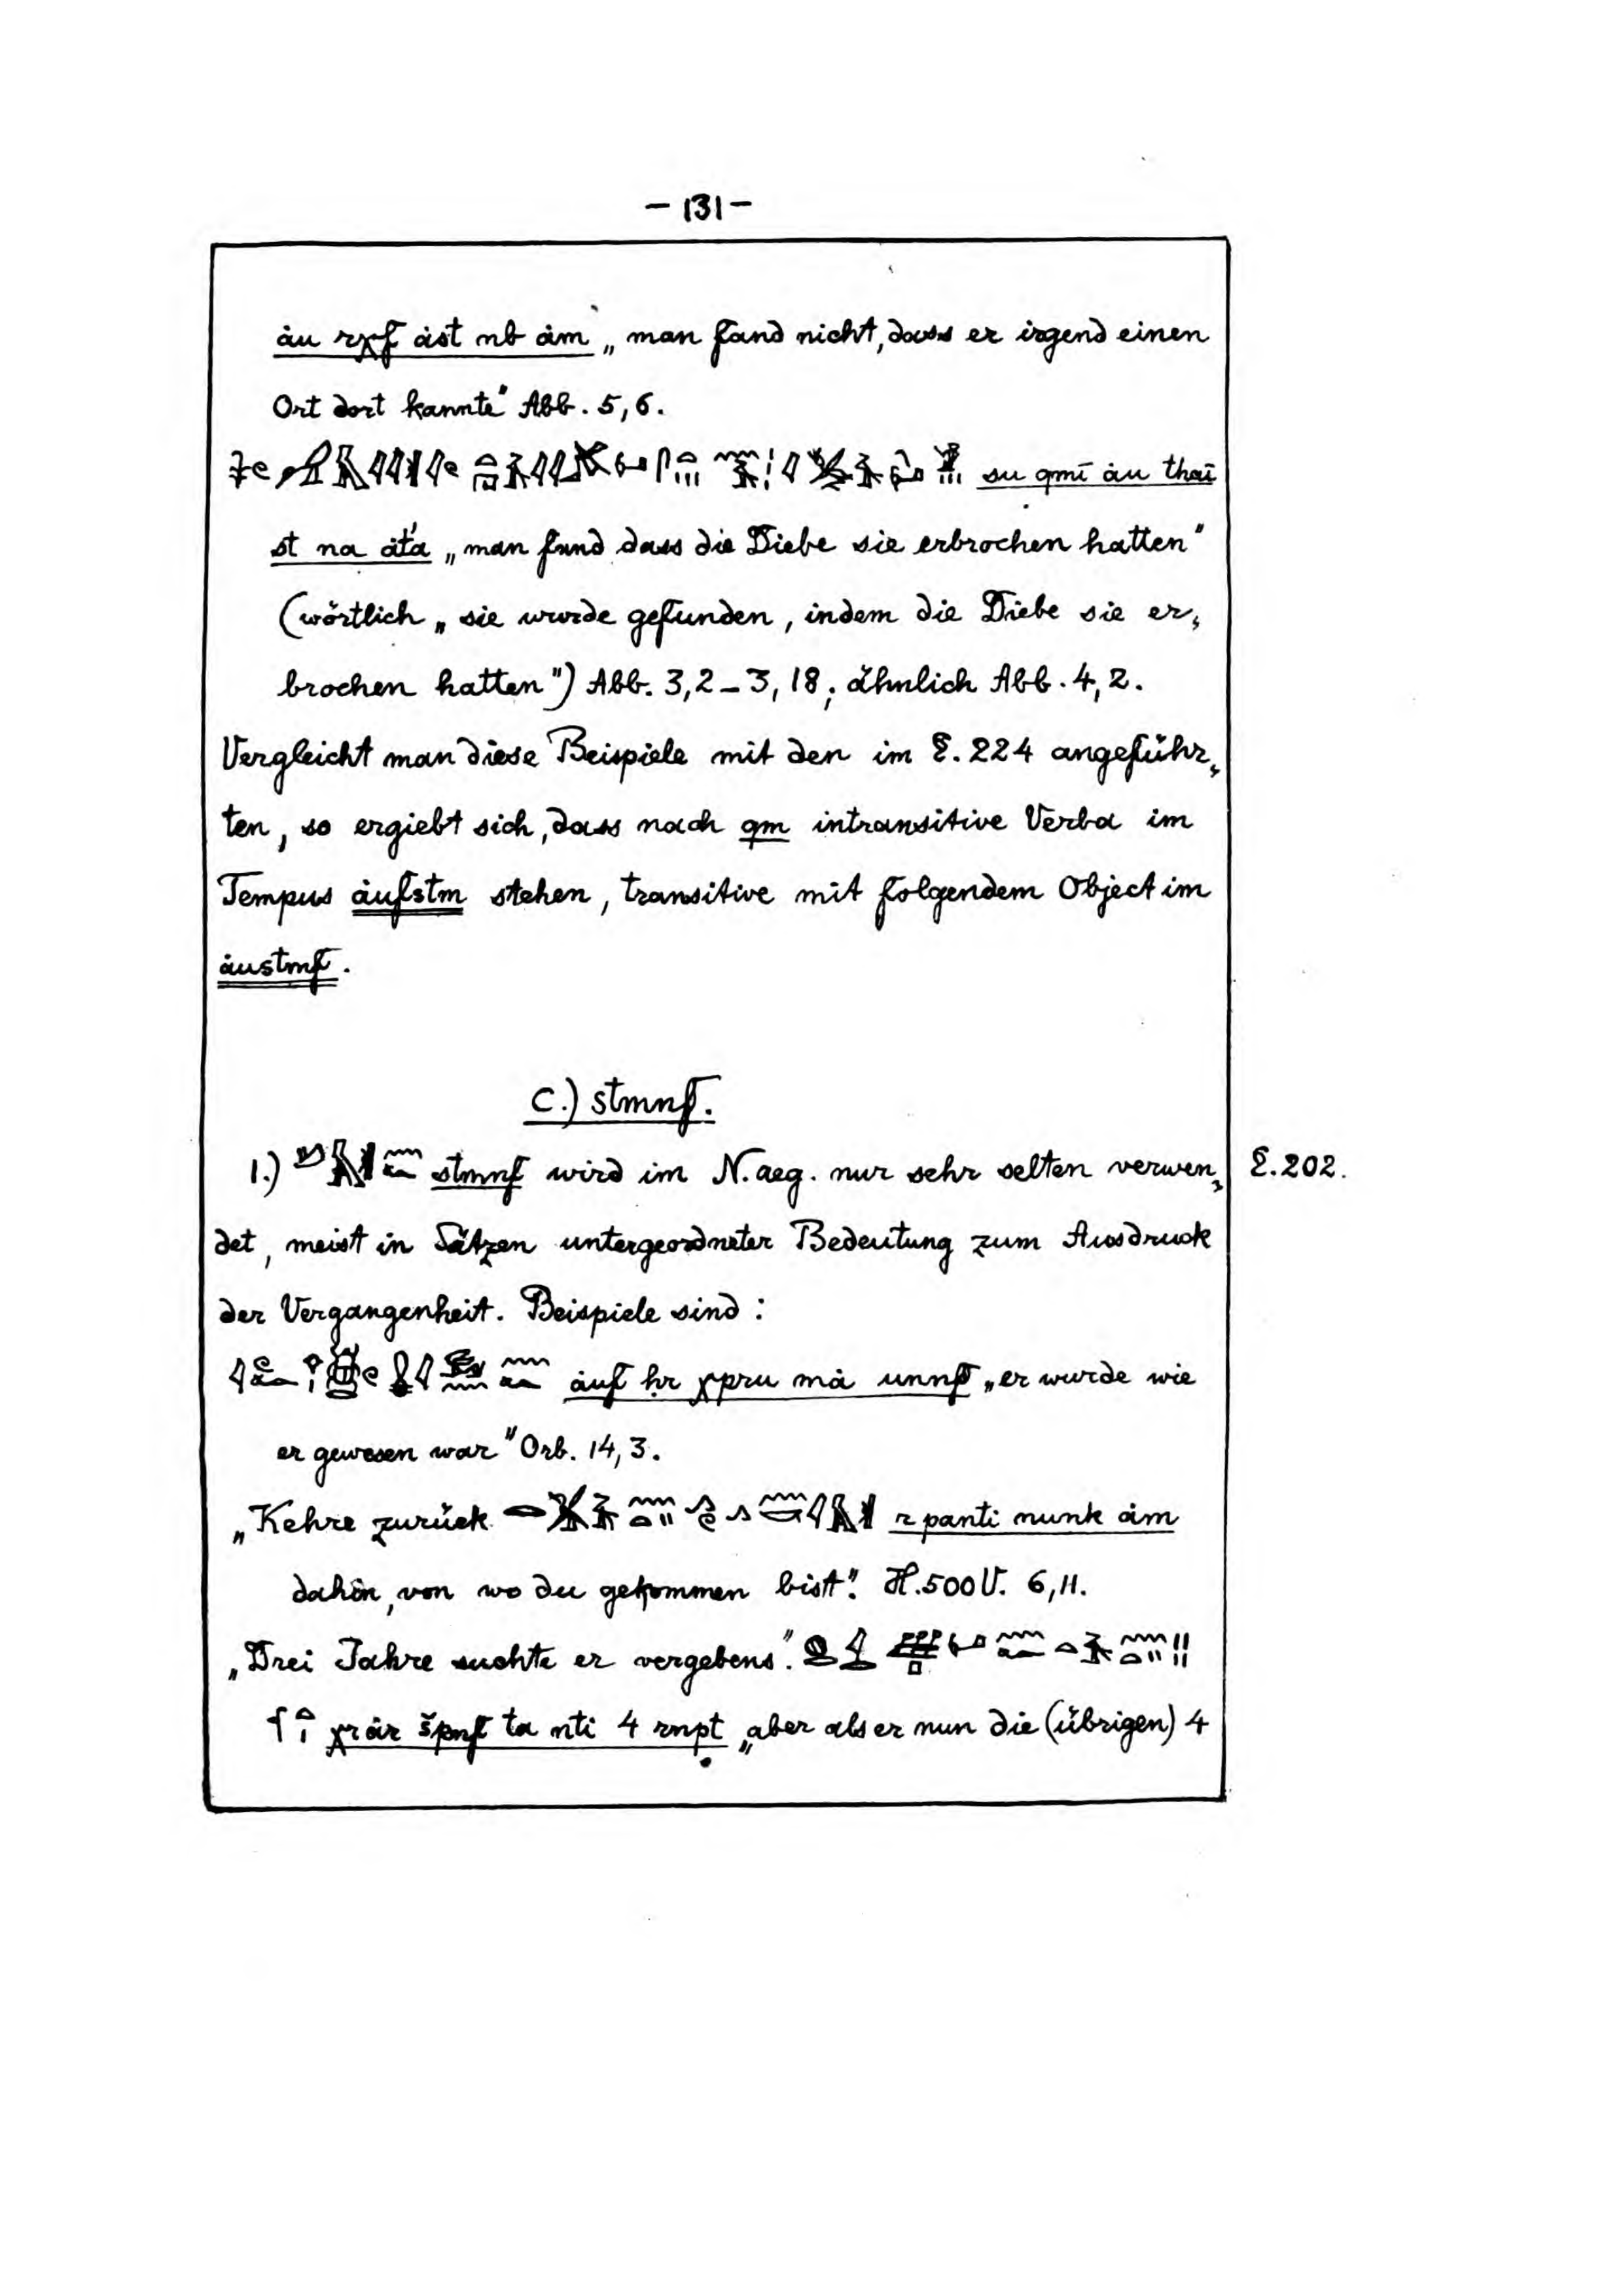 — 131 —
áu rχf ást nb ám „man fand nicht, dass er irgend einen
Ort dort kannte" Abb. 5,6.
su qmï áu thaï
st na át'a „man fand dass die Diebe sie erbrochen hatten"
(wörtlich „sie wurde gefunden, indem die Diebe sie er„
brochen hatten") Abb. 3,2 – 3,18; ähnlich Abb. 4,2.
Vergleicht man diese Beispiele mit den im §. 224 angeführ„
ten, so ergiebt sich, dass nach qm intransitive Verba im
Tempus áufstm stehen, transitive mit folgendem Object im
áustmf.
C.) stmnf.
1.) stmnf wird im N.aeg. nur sehr selten verwen„ §. 202.
det, meist in Sätzen untergeordneter Bedeutung zum Ausdruck
der Vergangenheit. Beispiele sind:
áuf ḥr χpru má unnf „er wurde wie
er gewesen war" Orb. 14,3.
„Kehre zurück r panti nunk ám
dahin, von wo du gekommen bist". H. 500 V. 6,11.
„Drei Jahre suchte er vergebens".
χr ár špnf ta nti 4 rnpt „aber als er nun die (übrigen) 4